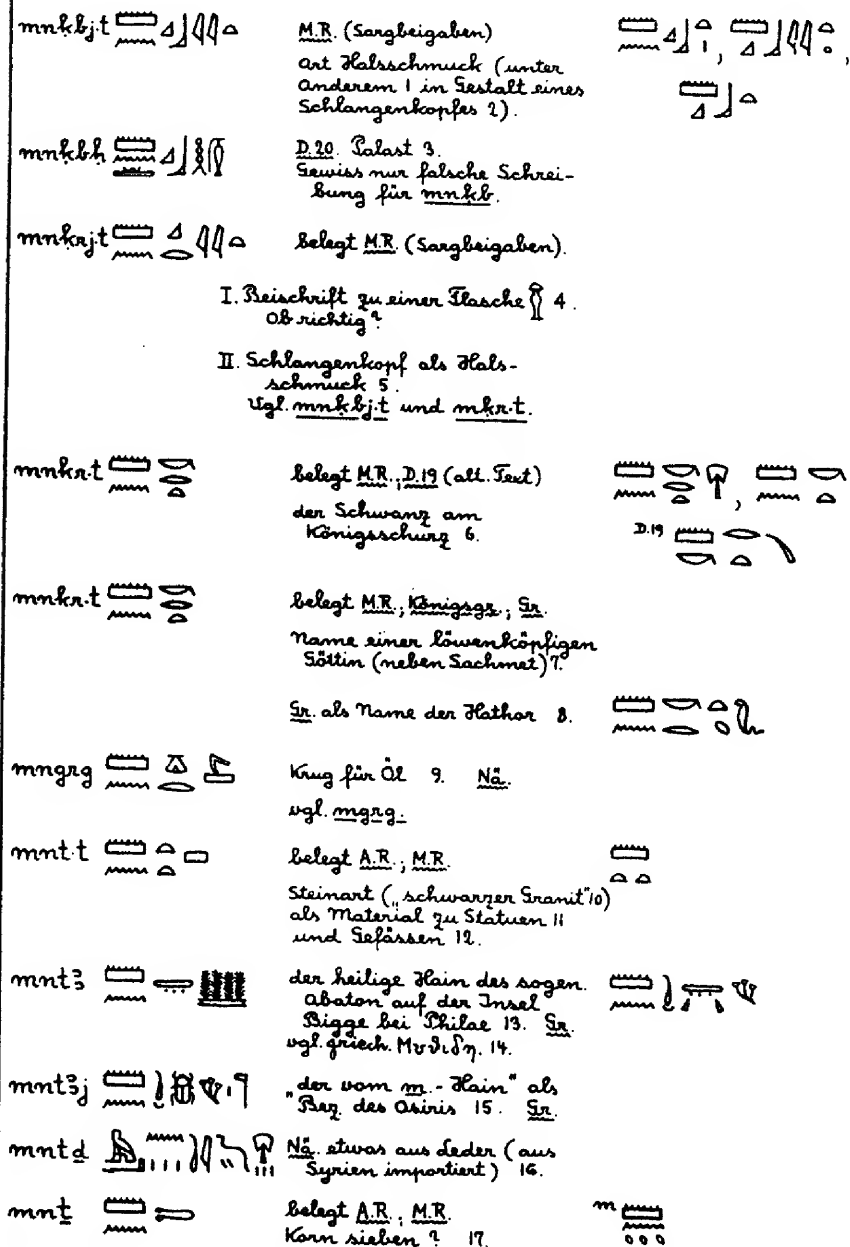 mnḳbj.t M.R. (Sargbeigaben)
Art Halsschmuck (unter
anderem 1 in Gestalt eines
Schlangenkopfes 2).
mnḳbḥ D.20. Palast 3.
Gewiss nur falsche Schrei-
bung für mnḳb.
mnḳrj.t belegt M.R. (Sargbeigaben).
I. Beischrift zu einer Flasche 4.
Ob richtig?
II. Schlangenkopf als Hals-
schmuck 5.
Vgl. mnḳbj.t und mḳr.t.
mnkr.t belegt M.R.; D.19 (alt. Text)
der Schwanz am
Königsschurz 6.
D.19
mnkr.t belegt M.R.; Königsgr.; Gr.
Name einer löwenköpfigen
Göttin (neben Sachmet) 7.
Gr. als Name der Hathor 8.
mngrg Krug für Öl 9. Nä.
vgl. mgrg.
mnt.t belegt A.R.; M.R.
Steinart („schwarzer Granit" 10)
als Material zu Statuen 11
und Gefässen 12.
mntꜣ der heilige Hain des sogen.
Abaton auf der Insel
Bigge bei Philae 13. Gr.
vgl. griech. Μυϑιδη. 14.
mntꜣj „der vom m.-Hain" als
Bez. des Osiris 15. Gr.
mntḏ Nä. etwas aus Leder (aus
Syrien importiert) 16.
mnṯ belegt A.R.; M.R. m
Korn sieben? 17.